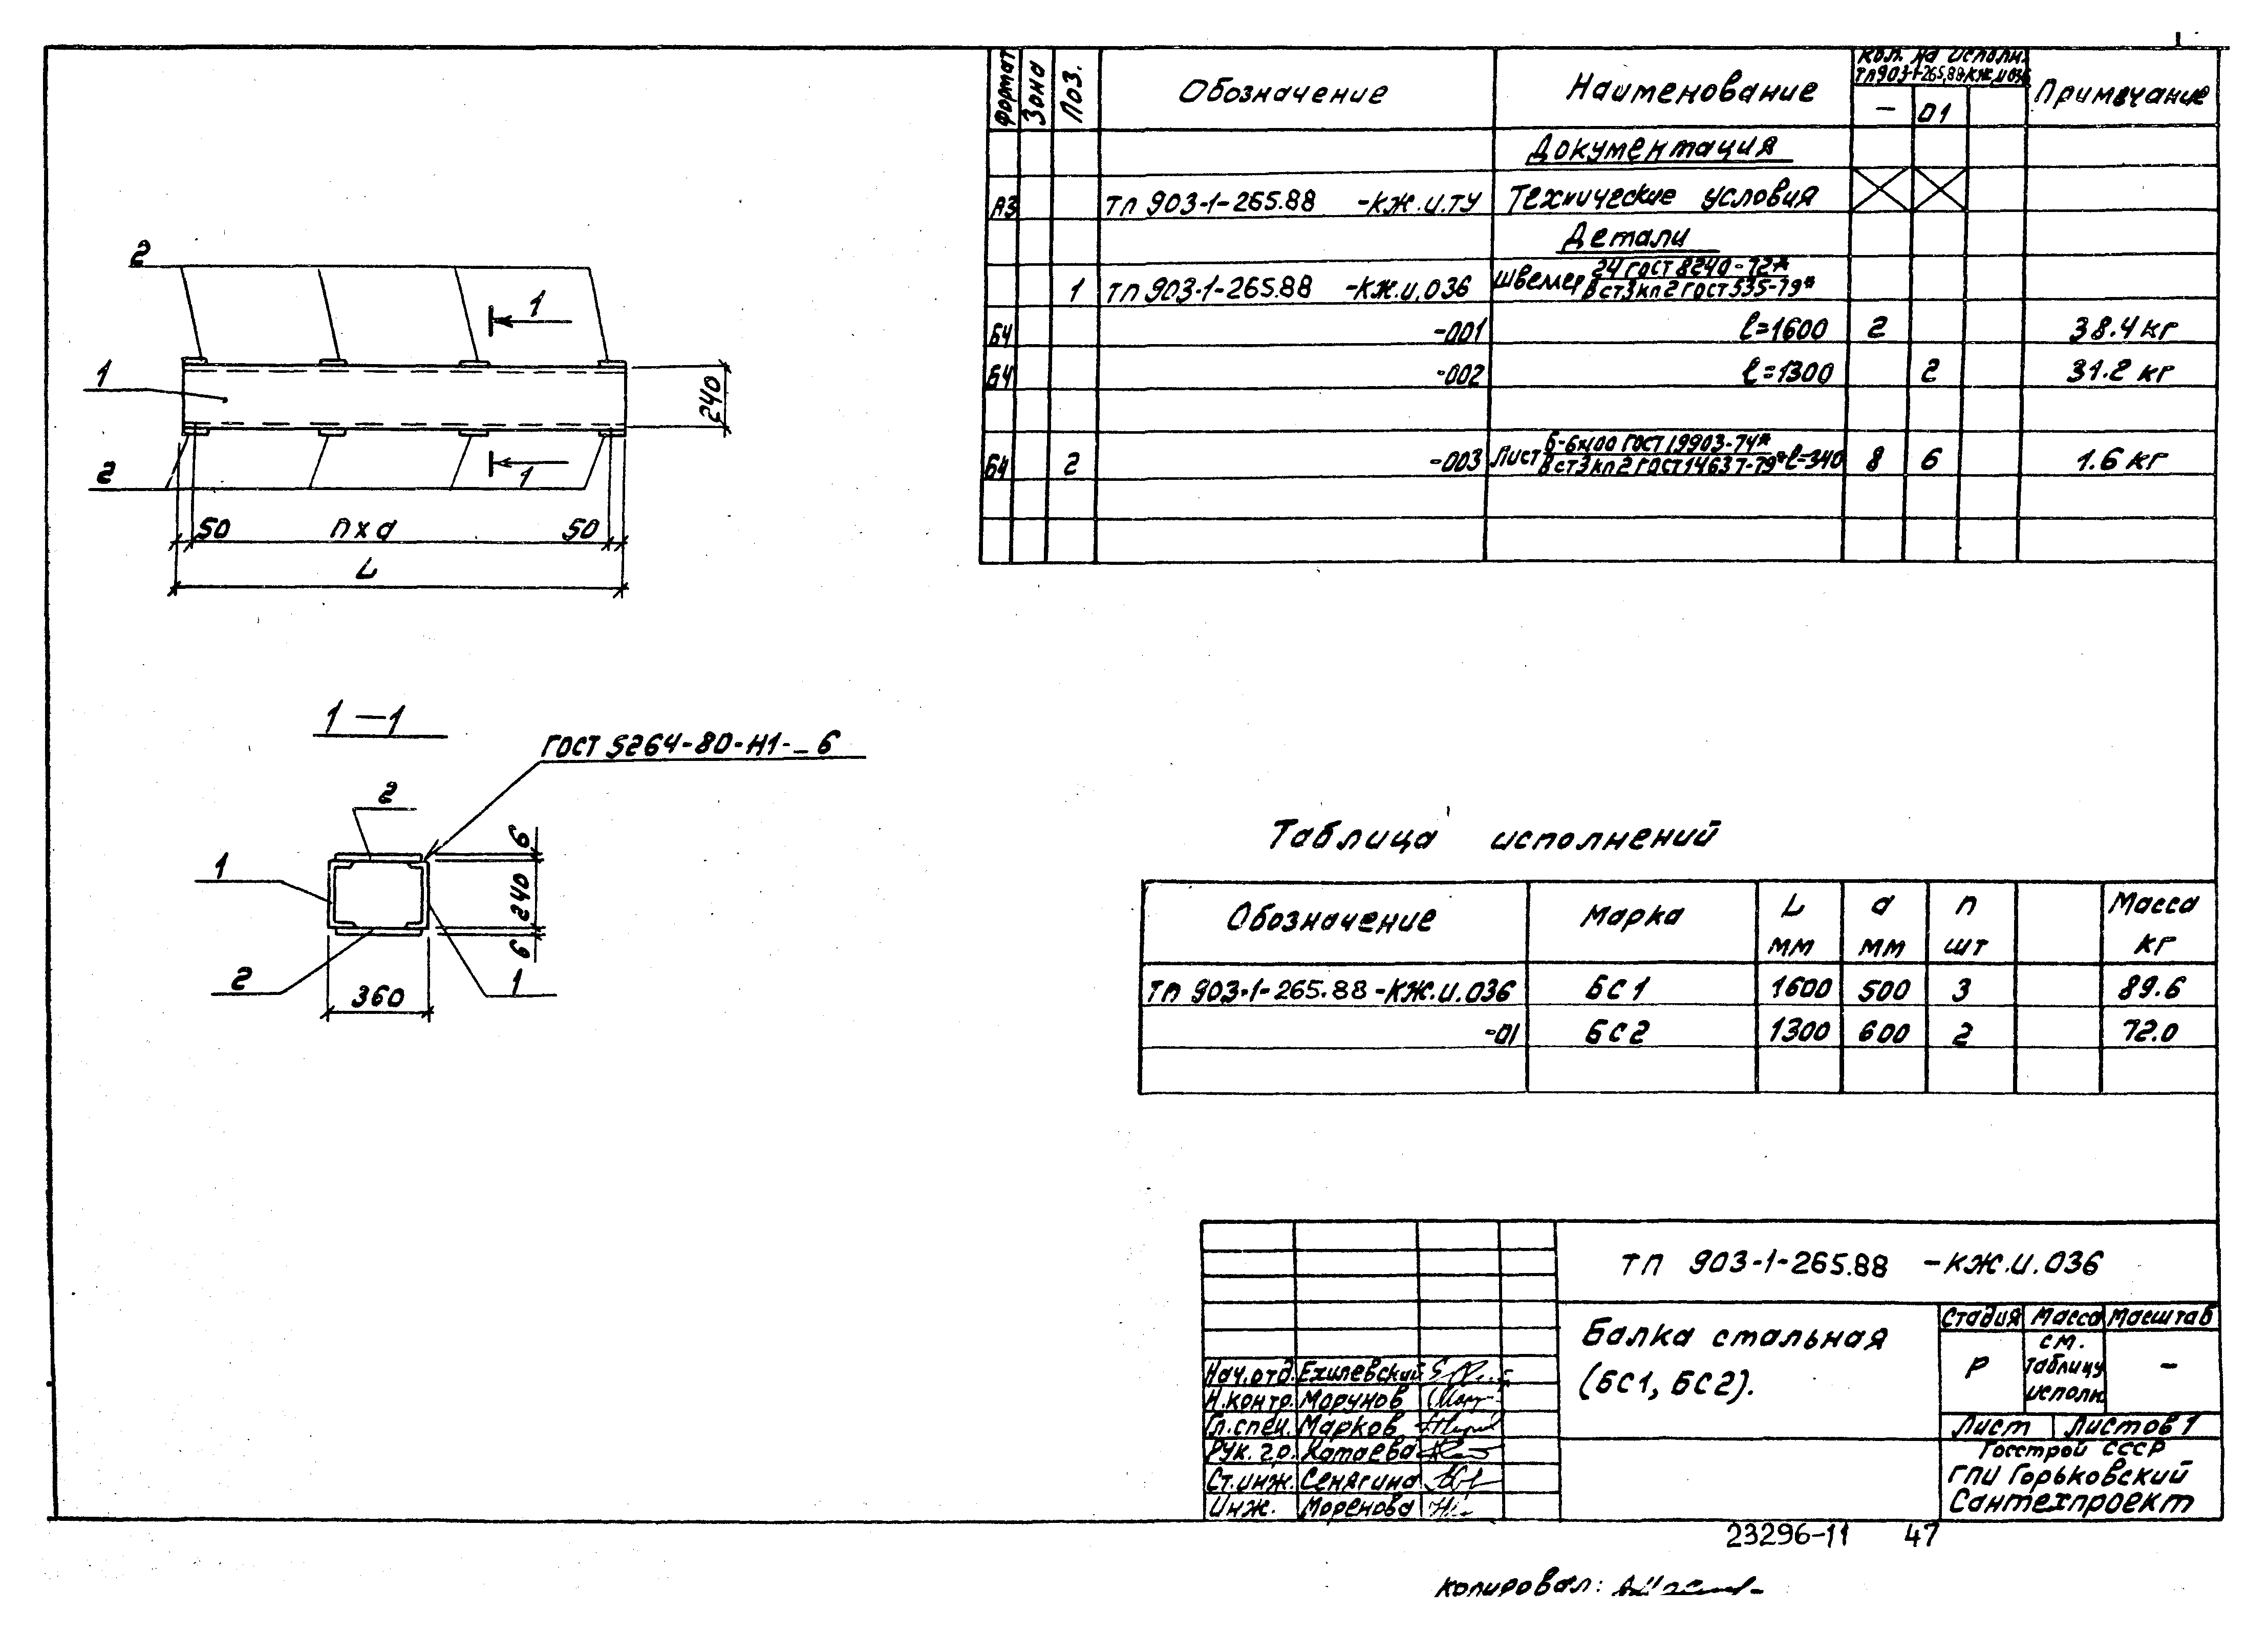 Формат Зона Поз. Обозначение Наименование Кол. на исполн. ТП903-1-265.88-КЖ.И.036 Примечание
– 01
Документация
А3 ТП 903-1-265.88 -КЖ.И.ТУ Технические условия
Детали
1 ТП 903-1-265.88 -КЖ.И.036 Швеллер 24 ГОСТ 8240-72* / Вст3кп2 ГОСТ 535-79*
Б4 -001 ℓ=1600 2 38.4 кг
Б4 -002 ℓ=1300 2 31.2 кг
Б4 2 -003 Лист Б-6х100 ГОСТ 19903-74* / Вст3кп2 ГОСТ 14637-79* ℓ=340 8 6 1.6 кг
2
1
1
240
2
1
50 n х а 50
L
1 — 1
ГОСТ 5264-80-Н1-_6
2
1
6
240
6
2
1
360
Таблица исполнений
Обозначение Марка L мм а мм n шт Масса кг
ТП 903-1-265.88-КЖ.И.036 БС1 1600 500 3 89.6
-01 БС2 1300 600 2 72.0
ТП 903-1-265.88 -КЖ.И.036
Балка стальная
(БС1, БС2).
Стадия Масса Масштаб
Р см. таблицу исполн –
Лист Листов 1
Госстрой СССР
ГПИ Горьковский
Сантехпроект
Нач.отд. Ехилевский
Н.контр. Марунов
Гл.спец. Марков
Рук.гр. Катаева
Ст.инж. Сенягина
Инж. Моренова
23296-11 47
Копировал: